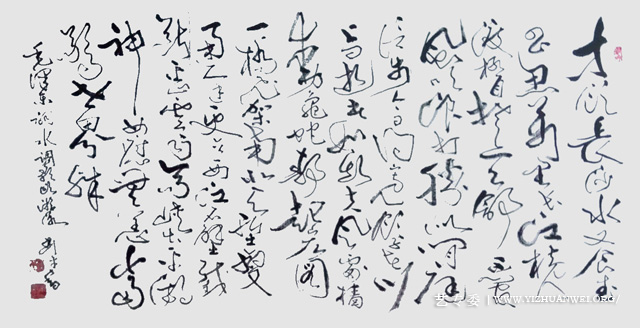 才饮长沙水又食武
昌鱼万里长江横
渡极目楚天舒不管
风吹浪打胜似闲庭
信步今日得宽余子在川
上曰逝者如斯夫风樯
动龟蛇静起宏图
一桥飞架南北天堑变
通途更立西江石壁截
断巫山云雨高峡出平湖
神女应无恙当
惊世界殊
毛泽东词水调歌头游泳
艺专委 | WWW.YIZHUANWEI.ORG/